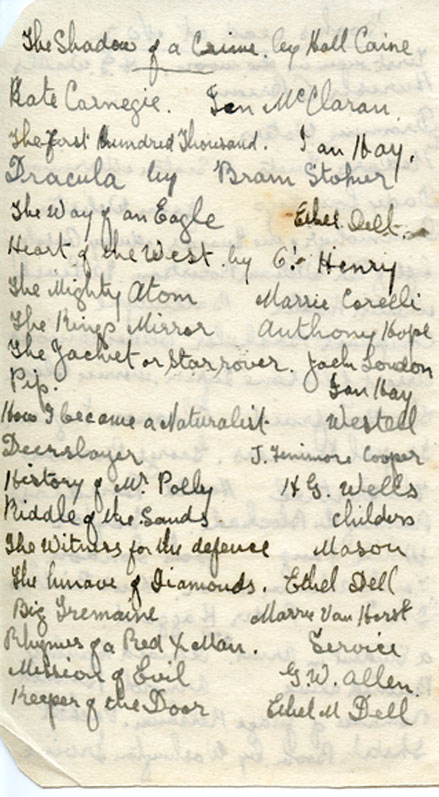 The Shadow of a Crime. by Hall Caine
Kate Carnegie. Ian McClaran.
The first hundred Thousand. Ian Hay.
Dracula by Bram Stoker
The Way of an Eagle Ethel Dell.
Heart of the West. by O. Henry
The Mighty Atom Marrie Corelli
The Kings Mirror Anthony Hope
The Jacket or Star rover. Jack London
Pip. Ian Hay
How I became a Naturalist Westell
Deerslayer J. Fenimore Cooper
History of Mr. Polly H.G. Wells
Riddle of the Sands Childers
The Witness for the defence Mason
The knave of Diamonds. Ethel Dell
Big Tremaine Marrie Van Horst
Rhymes of a Red X Man. Service
Mission of Evil G.W. Allen.
Keeper of the Door Ethel M Dell